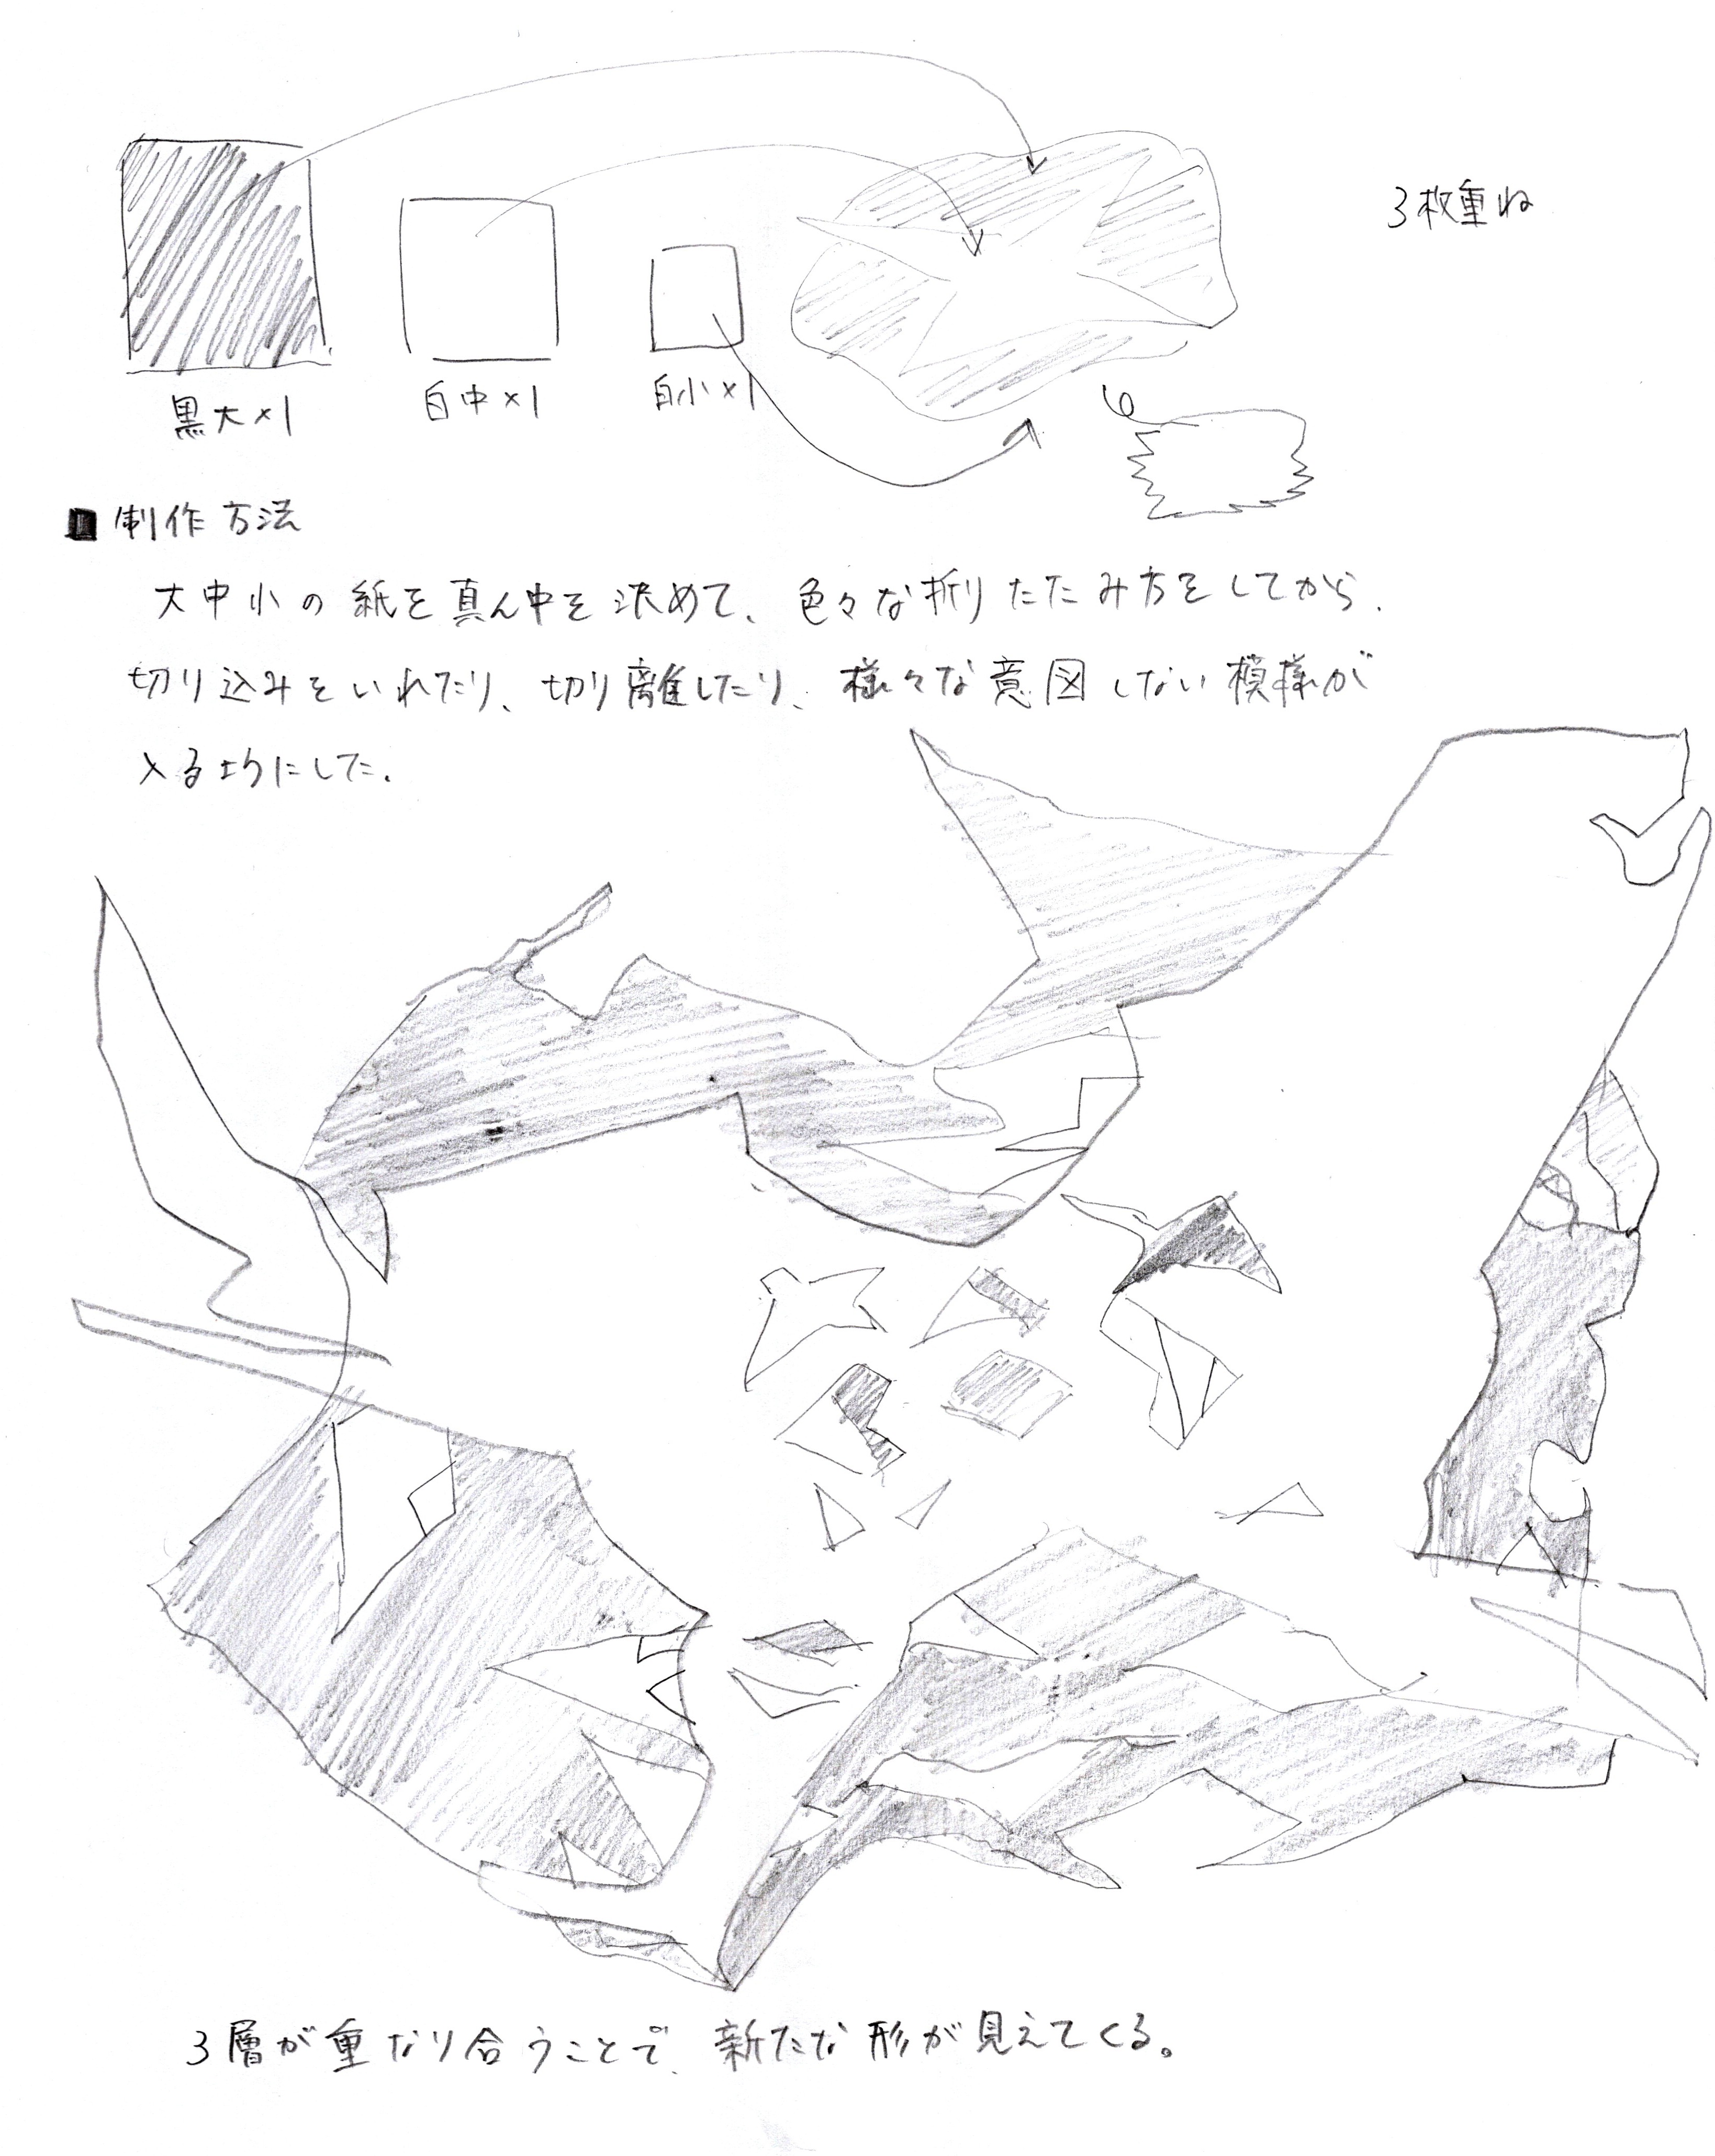 3枚重ね
黒大×1
白中×1
白小×1
■制作方法
大中小の紙を真ん中を決めて、色々な折りたたみ方をしてから、
切り込みをいれたり、切り離したり、様々な意図しない模様が
入るようにした。
3層が重なり合うことで、新たな形が見えてくる。